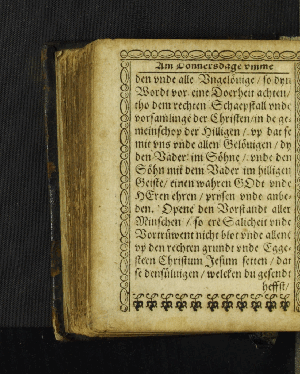 Am Donnersdage vmme
den vnde alle Vngelövige / so dyn
Wordt vor eine Doerheit achten /
tho dem rechten Schaepstall vnde
vorsamlinge der Christen / in de ge-
meinschop der Hilligen / vp dat se
mit vns vnde allen Gelövigen / dy
den Vader im Söhne / vnde den
Söhn mit dem Vader im hilligen
Geiste / einen wahren GOdt vnde
HEren ehren / prysen vnde anbe-
den. Opene den Vorstandt aller
Minschen / so ere Salicheit vnde
Vortruwent nicht blot vnde allene
vp den rechten grundt vnde Egge-
steen Christum Jesum setten / dat
se densülvigen / welcken du gesendt
heffst /